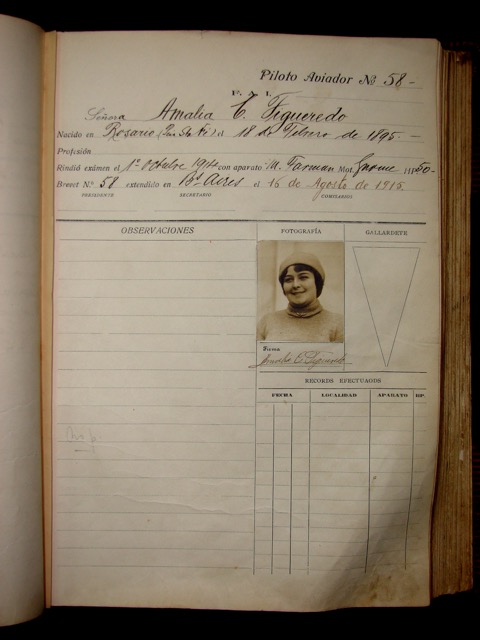 Piloto Aviador No 58-
F. A. I.
Señora Amalia C. Figueredo
Nacido en Rosario (Sta Fe) el 18 de Febrero de 1895.-
Profesión
Rindió exámen el 1º Octubre 1914 con aparato M. Farman Mot. Gnome HP 50-
Brevet N.º 58 extendido en Bs Aires el 16 de Agosto de 1915.
PRESIDENTE SECRETARIO COMISARIOS
OBSERVACIONES FOTOGRAFÍA GALLARDETE
Firma
Amalia C. Figueredo
RECORDS EFECTUADOS
FECHA LOCALIDAD APARATO HP.